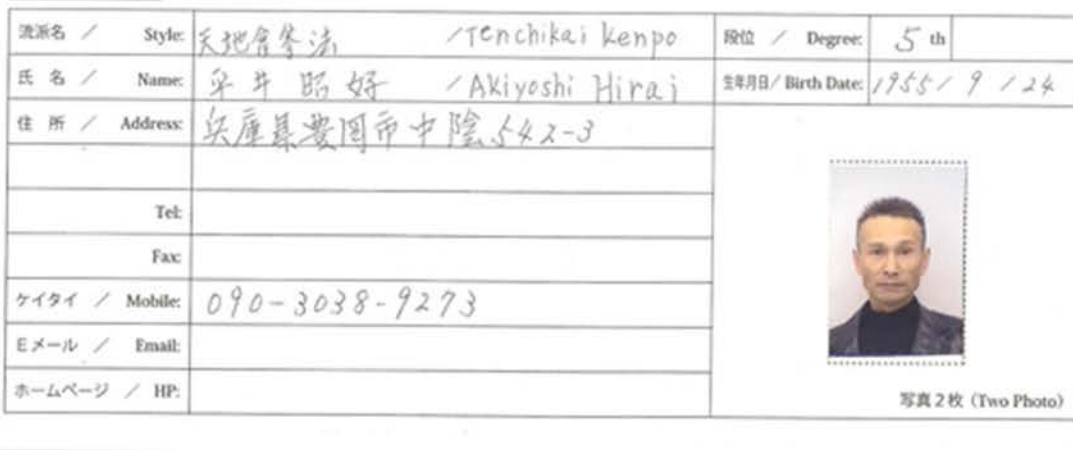 流派名 / Style: 天地會拳法 /Tenchikai Kenpo 段位 / Degree: 5 th
氏名 / Name: 平井 昭好 /Akiyoshi Hirai 生年月日/ Birth Date: 1955/ 9 / 24
住所 / Address: 兵庫県豊岡市中陰542-3
Tel:
Fax:
ケイタイ / Mobile: 090-3038-9273
Eメール / Email:
ホームページ / HP:
写真2枚 (Two Photo)